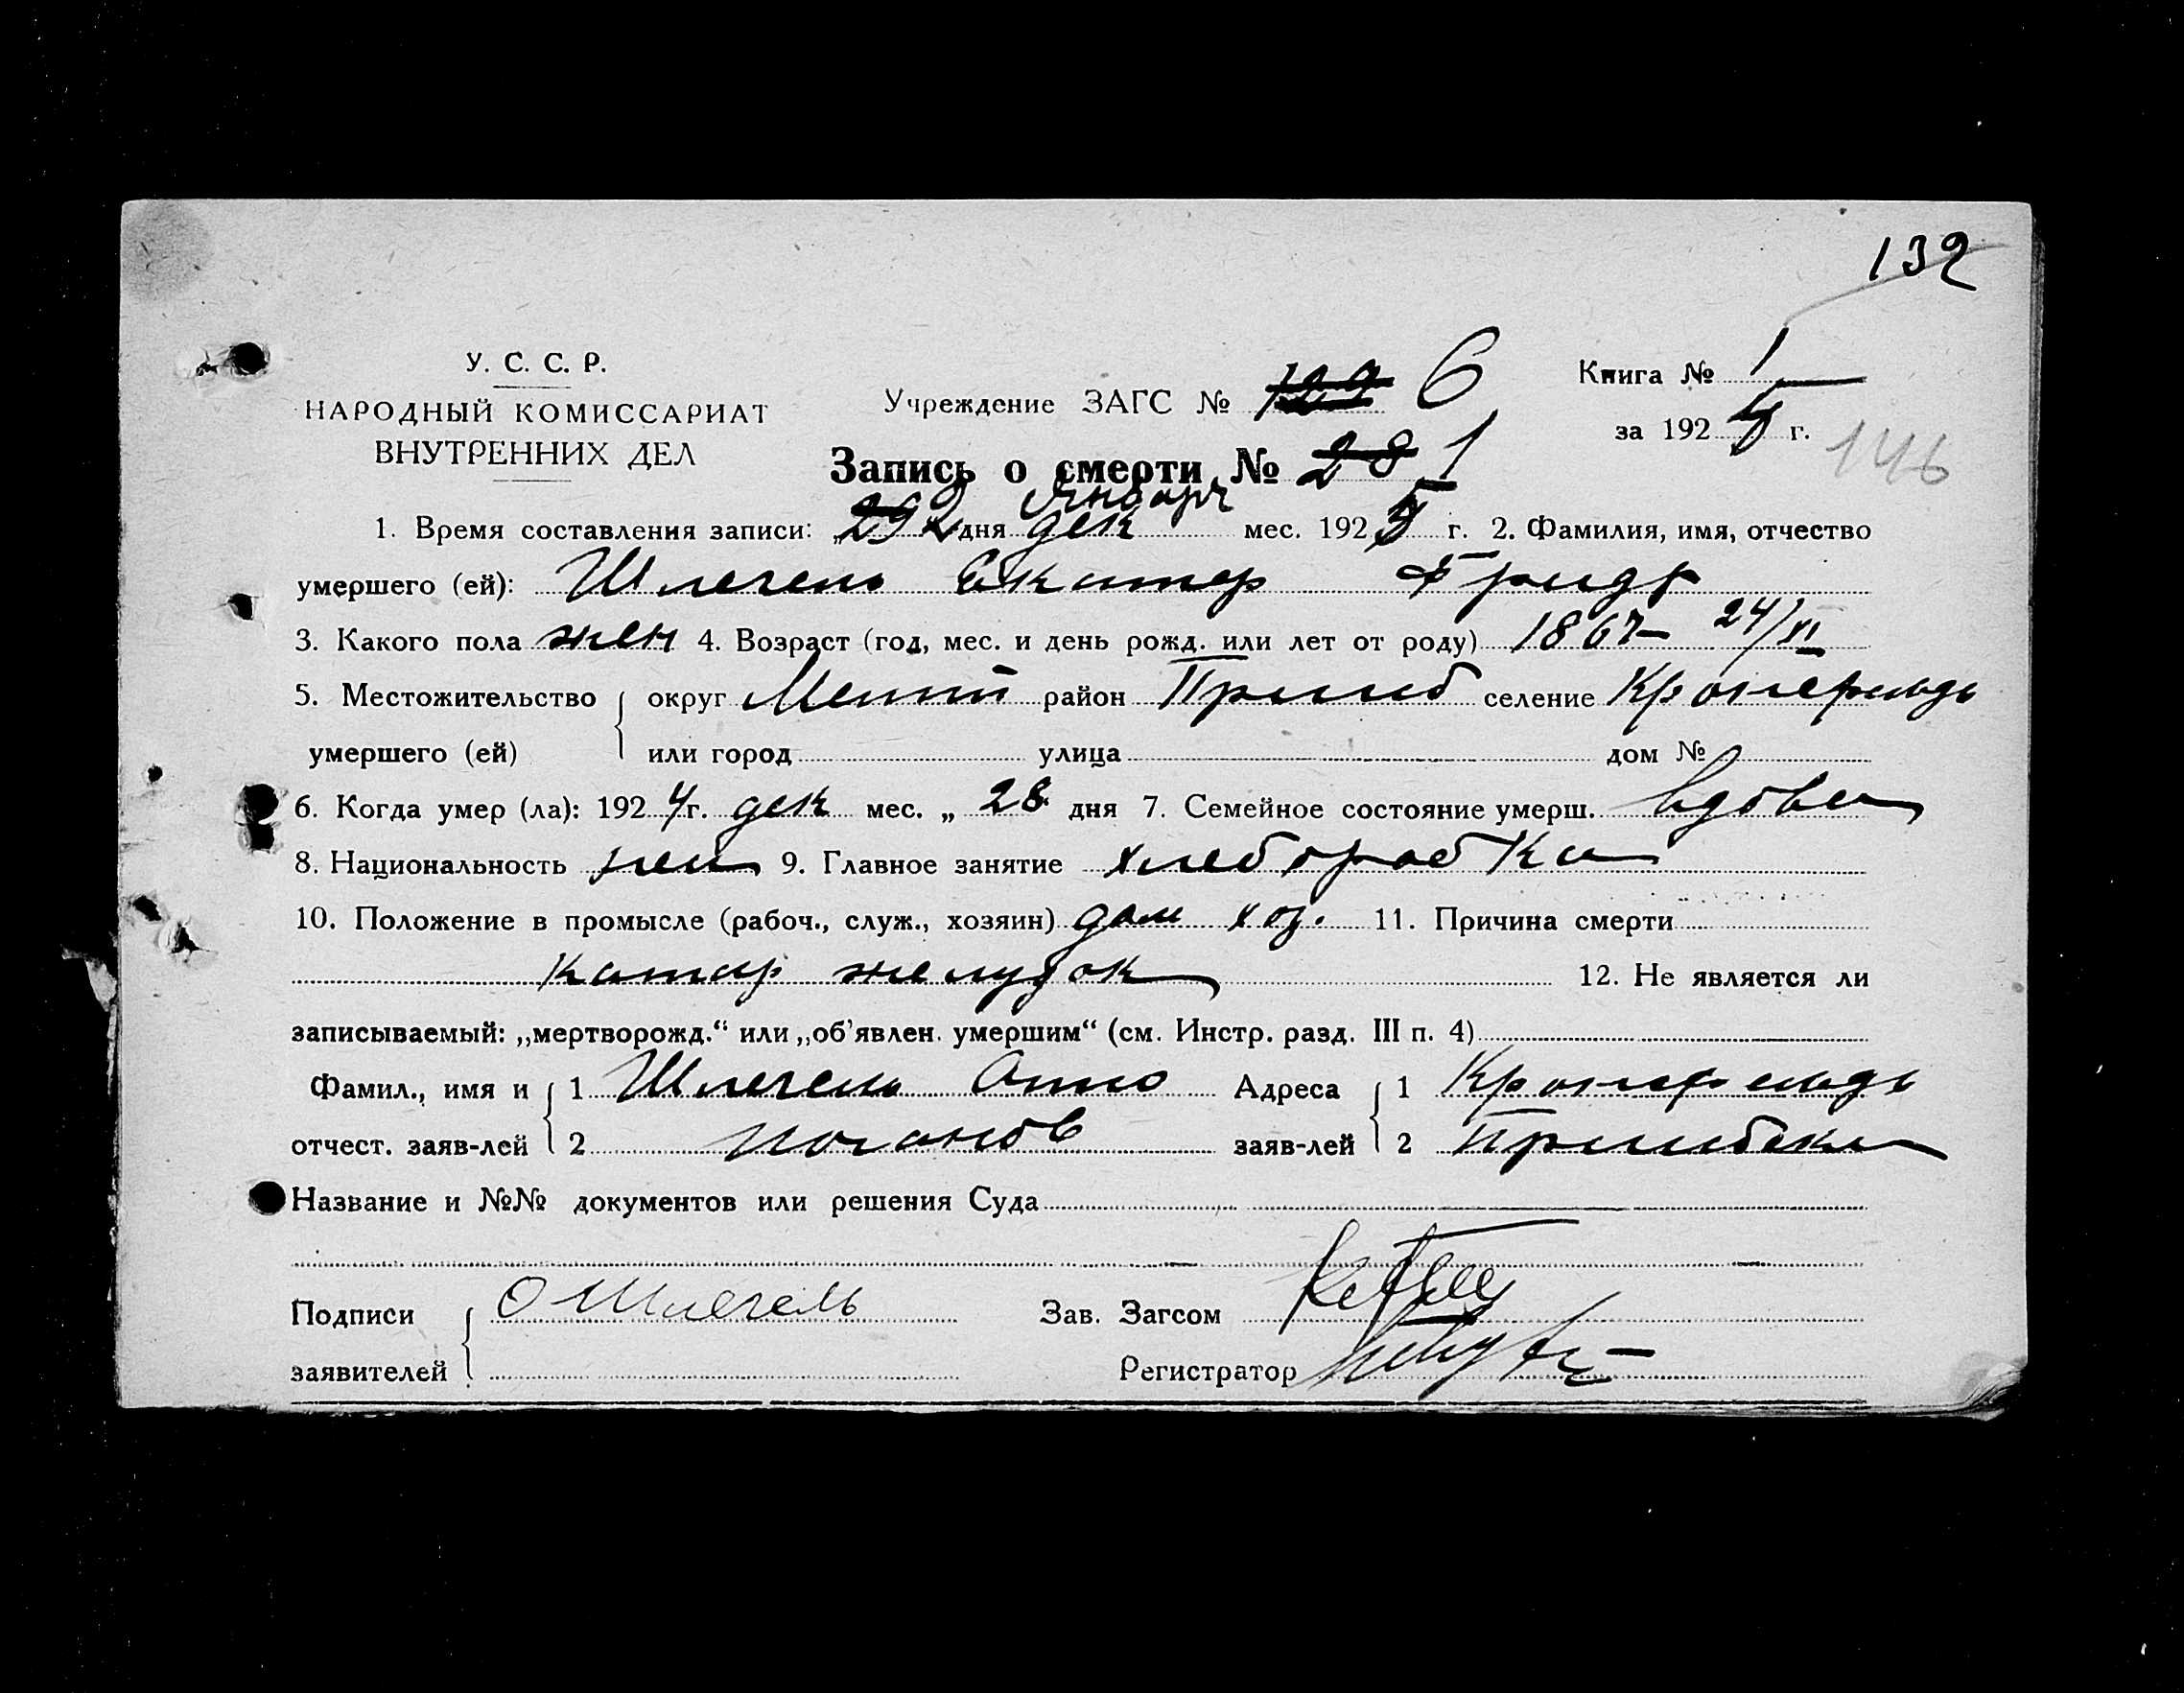 132
У. С. С. Р.
НАРОДНЫЙ КОМИССАРИАТ
ВНУТРЕННИХ ДЕЛ
Учреждение ЗАГС № 129 6
Книга № 1
за 1925 г.
146
Запись о смерти № 28 1
январь
1. Время составления записи: „29 2 дня дек мес. 1925 г. 2. Фамилия, имя, отчество
умершего (ей): Шлегель Екатер Фридр
3. Какого пола жен 4. Возраст (год, мес. и день рожд. или лет от роду) 1867 – 24/XI
5. Местожительство округ Мелит район Пришиб селение Кронсфельдь
умершего (ей) или город улица дом №
6. Когда умер (ла): 1924 г. дек мес. „ 28 дня 7. Семейное состояние умерш. вдова
8. Национальность нем 9. Главное занятие хлеборобка
10. Положение в промысле (рабоч., служ., хозяин) дом хоз. 11. Причина смерти
катар желудок 12. Не является ли
записываемый: „мертворожд.“ или „об’явлен. умершим“ (см. Инстр. разд. III п. 4)
Фамил., имя и 1 Шлегель Отто Адреса 1 Кронсфельдь
отчест. заяв-лей 2 Иоганов заяв-лей 2 Пришибска
Название и №№ документов или решения Суда
Подписи О Шлегель Зав. Загсом
заявителей Регистратор